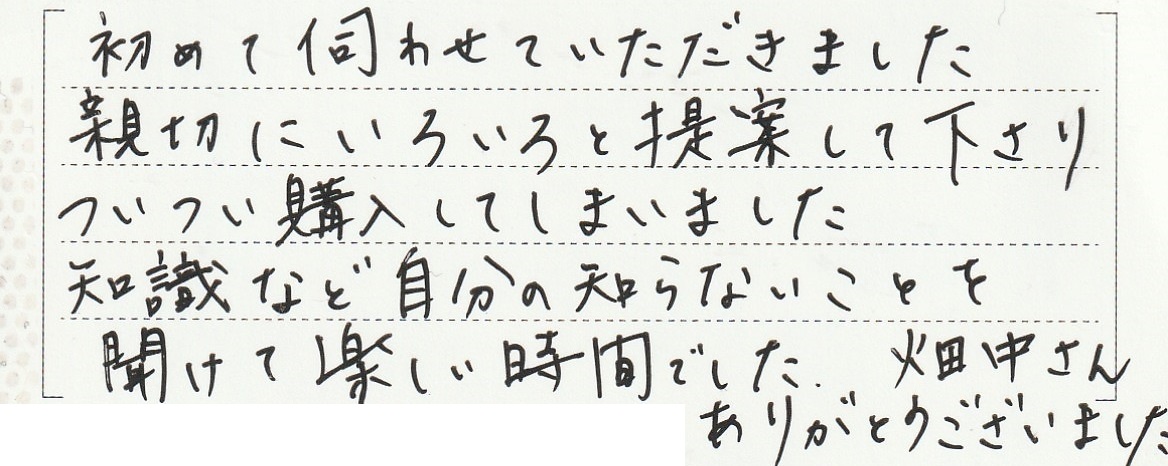 初めて伺わせていただきました
親切にいろいろと提案して下さり
ついつい購入してしまいました
知識など自分の知らないことを
聞けて楽しい時間でした. 畑中さん
ありがとうございました